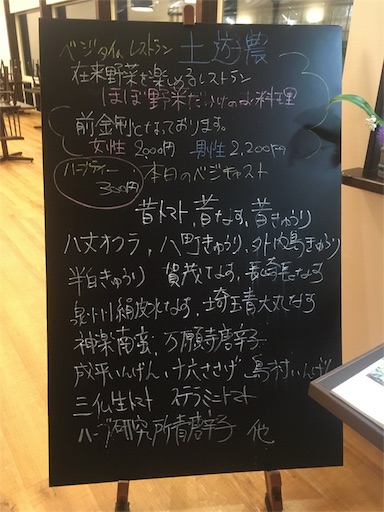 ベジタイムレストラン 土遊農
在来野菜を楽しめるレストラン
ほぼ野菜だけのお料理
前金制となっております。
女性 2,000円 男性 2,200円
ハーブティー 300円
本日のベジキャスト
昔トマト,昔なす,昔きゅうり
八丈オクラ,八町きゅうり,外内島きゅうり
半白きゅうり 賀茂なす,長崎長なす
泉州絹皮水なす,埼玉青大丸なす
神楽南蛮,万願寺唐辛子
成平いんげん,十六ささげ 島村いんげん
三仏生トマト ステラミニトマト
ハーブ研究所青唐辛子 他